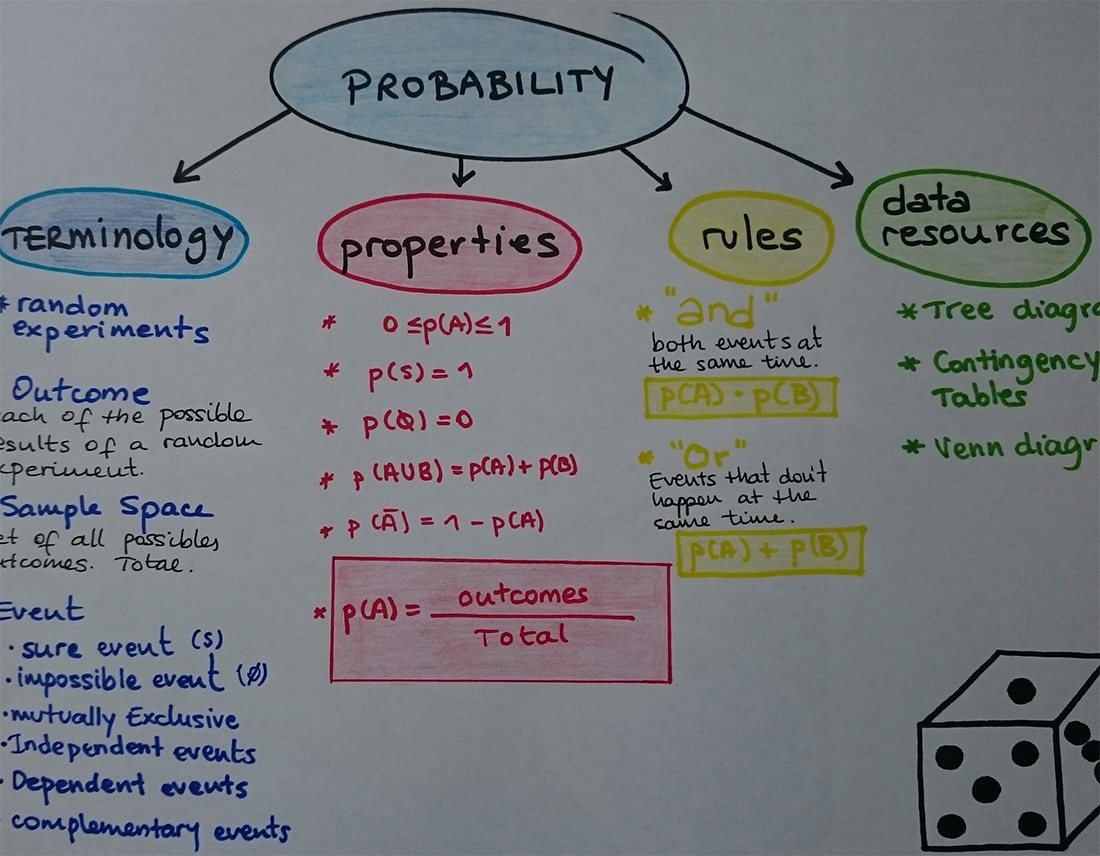 PROBABILITY
TERminology
* random
experiments
Outcome
ach of the possible
esults of a random
xperiment.
Sample Space
et of all possibles
utcomes. Total.
Event
· sure event (S)
· impossible event (Ø)
· mutually Exclusive
· Independent events
· Dependent events
complementary events
properties
* 0 ≤ p(A) ≤ 1
* p(S) = 1
* p(Ø) = 0
* p(AUB) = p(A) + p(B)
* p(Ā) = 1 - p(A)
* p(A) = outcomes
Total
rules
* "and"
both events at
the same time.
p(A) · p(B)
* "Or"
Events that don't
happen at the
same time.
p(A) + p(B)
data
resources
* Tree diagra
* Contingency
Tables
* Venn diagr